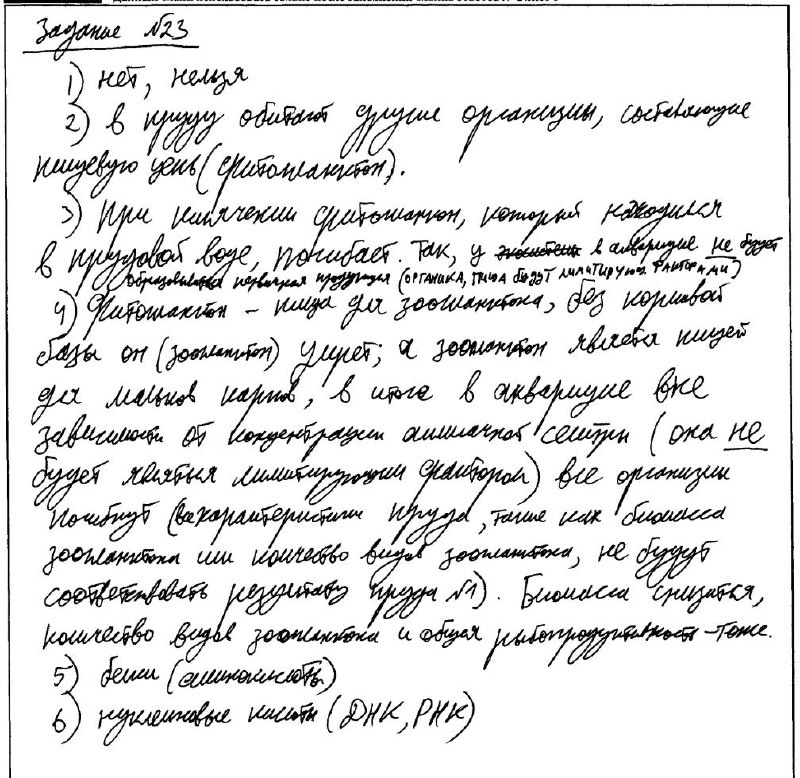 Задание №23
1) нет, нельзя
2) в пруду обитают другие организмы, составляющие
пищевую цепь (фитопланктон).
3) При кипячении фитопланктон, который находился
в прудовой воде, погибает. Так, у в аквариуме не будет
образовываться первичная продукция (органика, пища будут лимитирующ. факторами)
4) Фитопланктон – пища для зоопланктона, без кормовой
базы он (зоопланктон) умрет; а зоопланктон является пищей
для мальков карпов, в итоге в аквариуме вне
зависимости от концентрации аммиачной селитры (она не
будет являться лимитирующим фактором) все организмы
погибнут (характеристики пруда, такие как биомасса
зоопланктона или количество видов зоопланктона, не будут
соответствовать результату пруда №1). Биомасса снизится,
количество видов зоопланктона и общая рыбопродуктивность – тоже.
5) белки (аминокислоты)
6) нуклеиновые кислоты (ДНК, РНК)